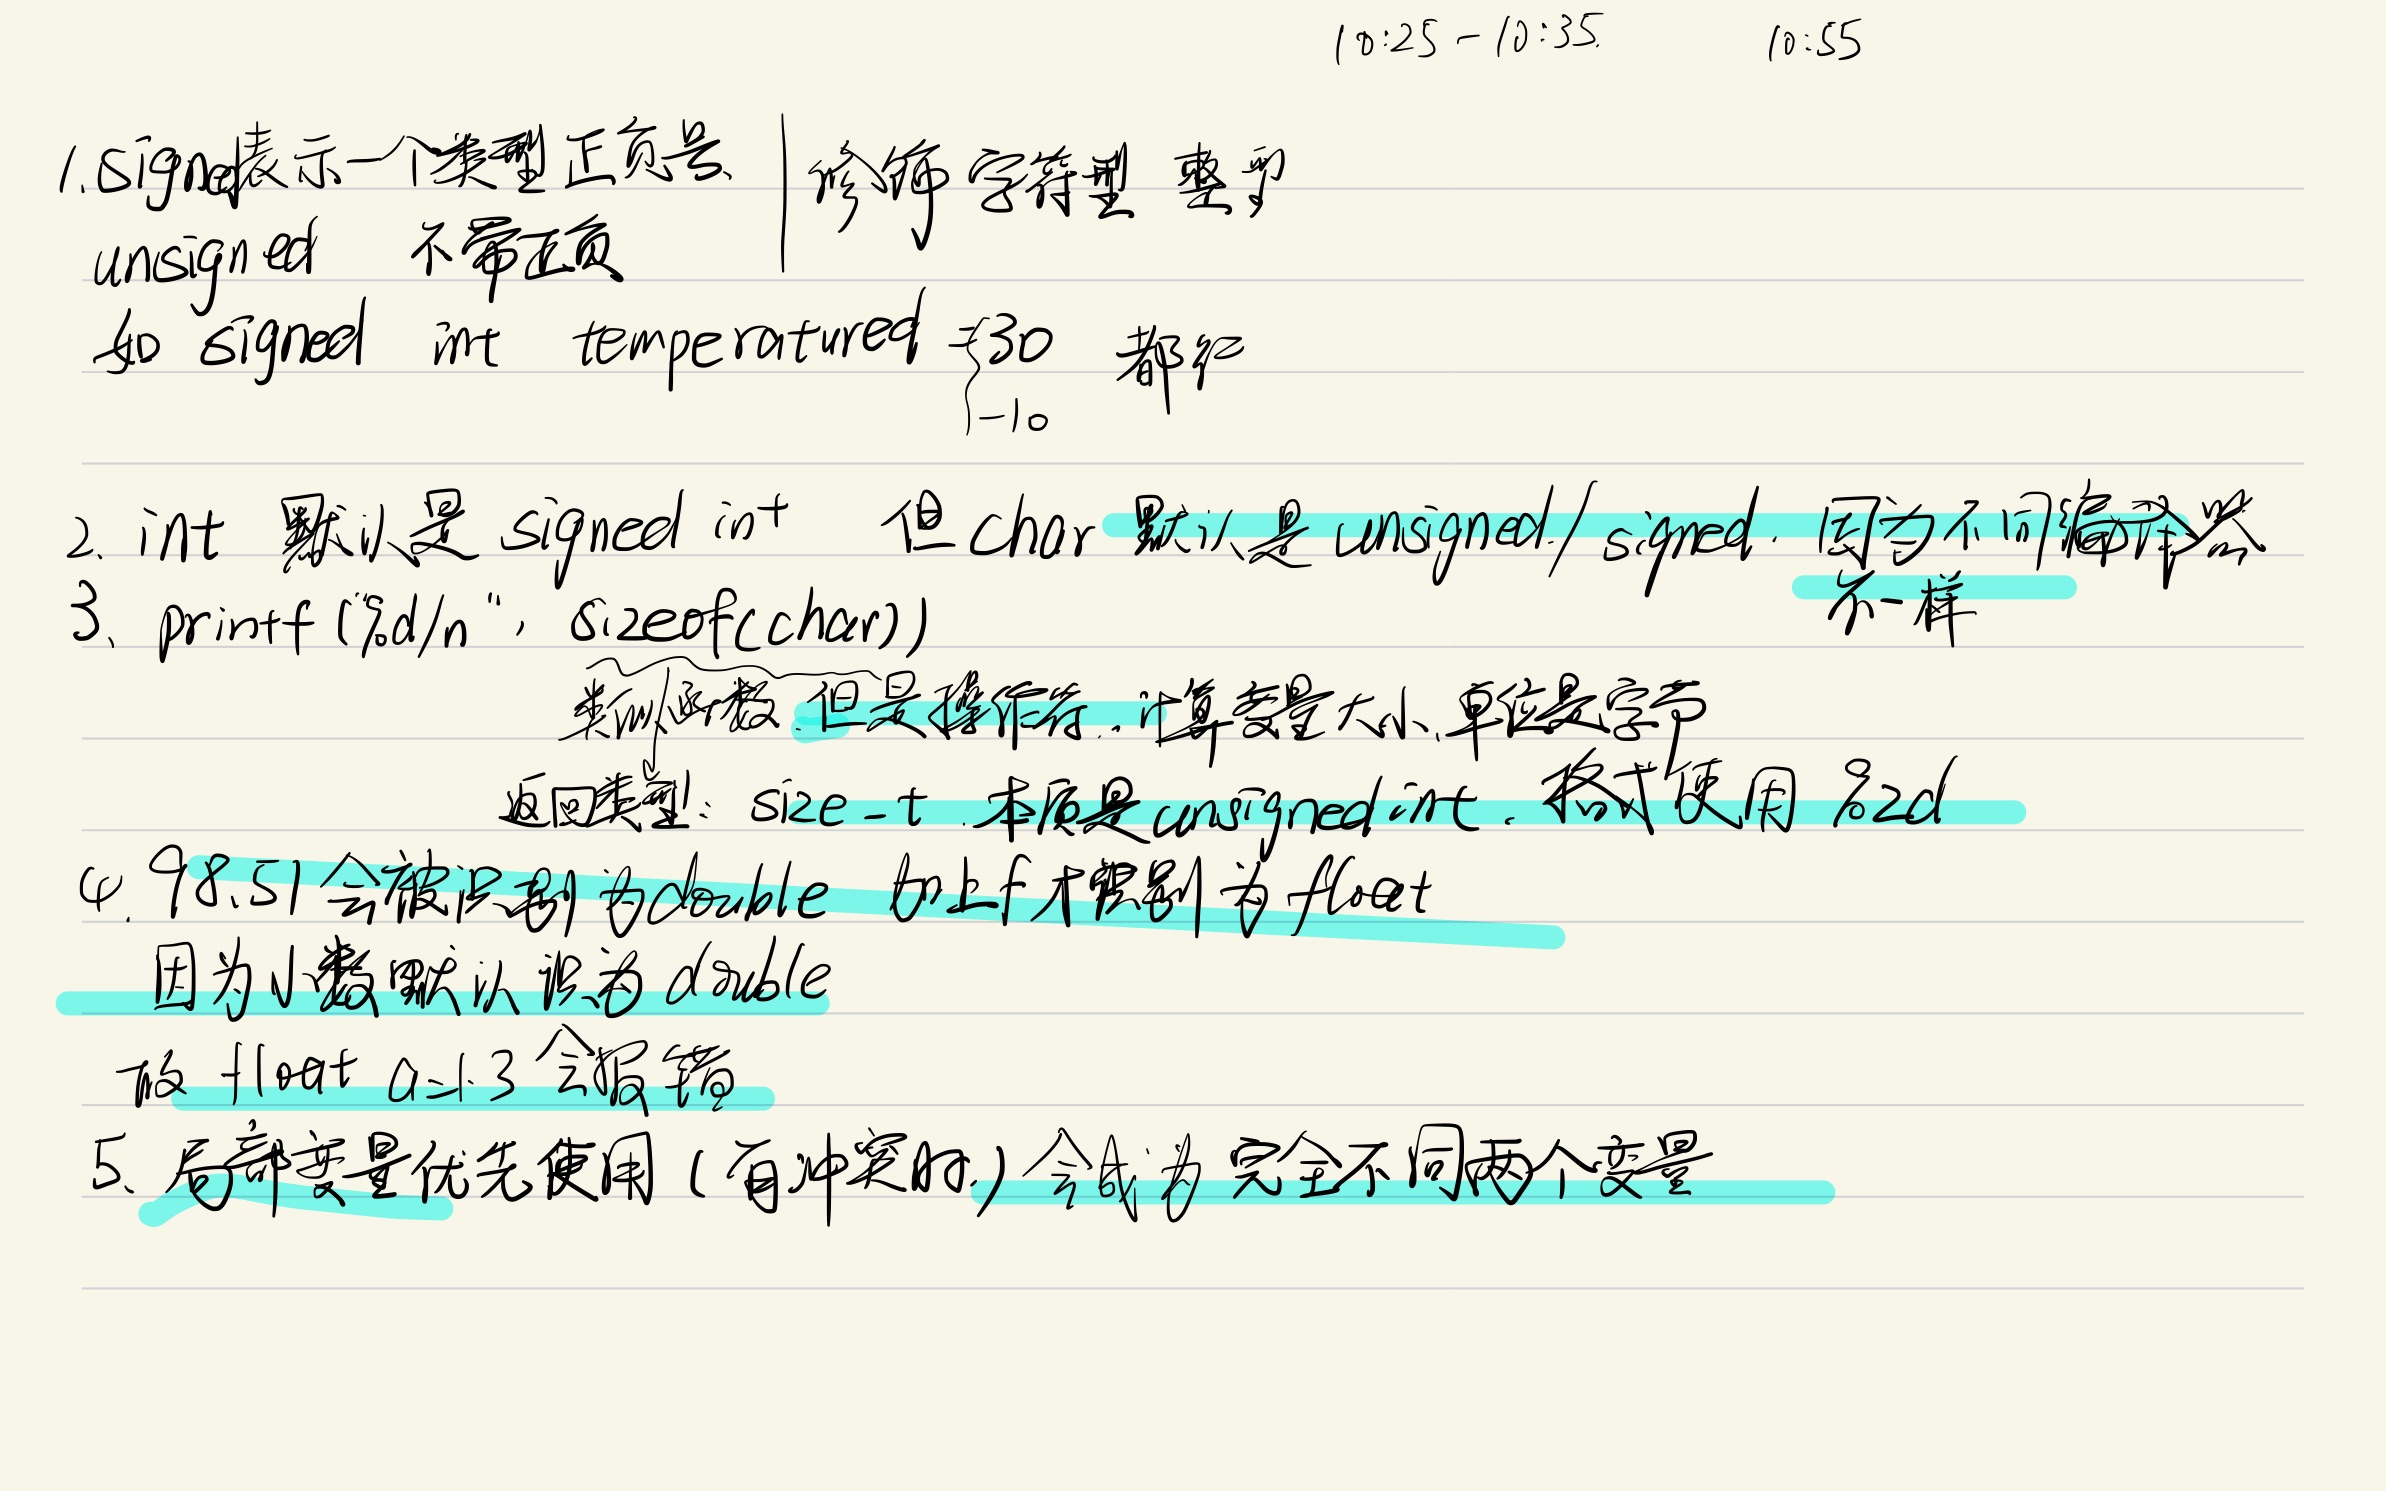 10:25-10:35 10:55
1.signed表示一个类型正负号、 修饰字符型 整型
unsigned 不带正负
如 signed int temperatured = 30 都行
-10
2. int 默认是 signed int 但 char 默认是 unsigned/signed. 因为不同编译器
不一样
3、printf("%d/n", sizeof(char))
类似函数.但是操作符.计算变量大小、单位是字节
返回类型: size-t.本质是unsigned int. 格式使用 %zd
4. 98.51会被识别为double 加上f才识别为float
因为小数默认识为double
故 float a=1.3 会报错
5、局部变量优先使用(有冲突时.)会成为完全不同两个变量